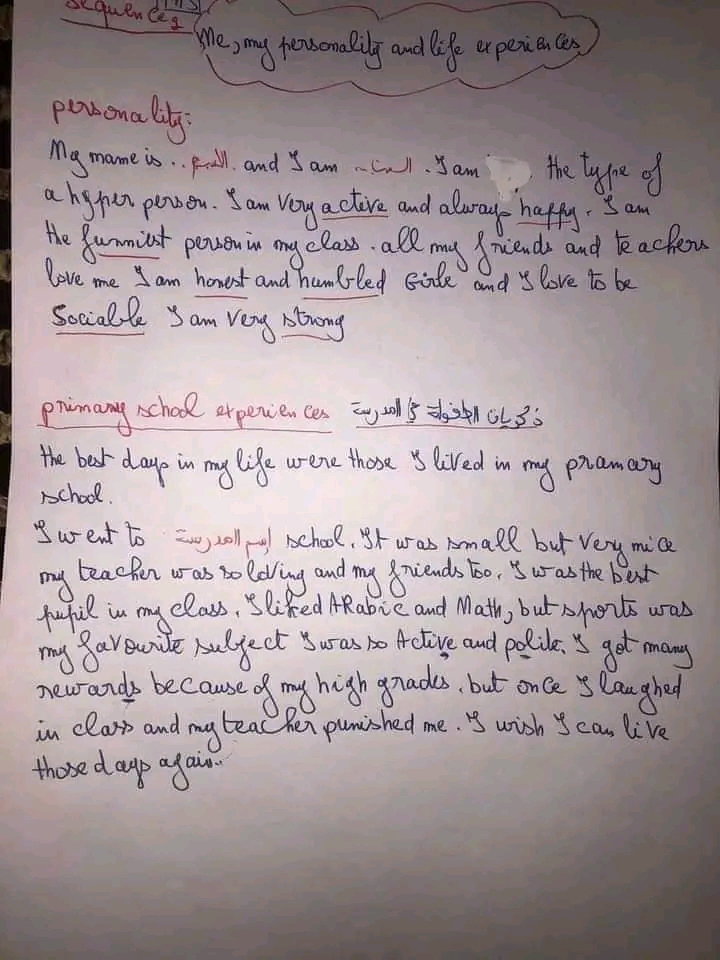 Sequence 2
Me, my personality and life experiences
personality:
My name is .. and I am . I am the type of
a hyper person. I am Very active and always happy. I am
the funniest person in my class. all my friends and teachers
love me I am honest and humbled Girle and I love to be
Sociable I am Very strong
primary school experiences ذكريات الطفولة في المدرسة
the best days in my life were those I lived in my pramary
school.
I went to إسم المدرسة school. It was small but Very nice
my teacher was so loving and my friends too. I was the best
pupil in my class. I liked ARabic and Math, but sports was
my favourite subject I was so Active and polite. I got many
rewards because of my high grades. but once I laughed
in class and my teacher punished me. I wish I can live
those days again..